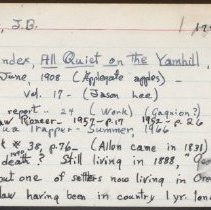 , J.B.
ndex, All Quiet on the Yamhill,
June, 1908 (Applegate apples) -
Vol. 17 - (Jason Lee)
report - 24 (Work) (Gagnion?)
aw Pioneer - 1957 - p.17 1952 - p.26
ua Trapper - Summer, 1966
* 38, p.76 - (Allon came in 1831)
death? Still living in 1888,
out one of settlers now living in Ore
law having been in country 1 yr. lon